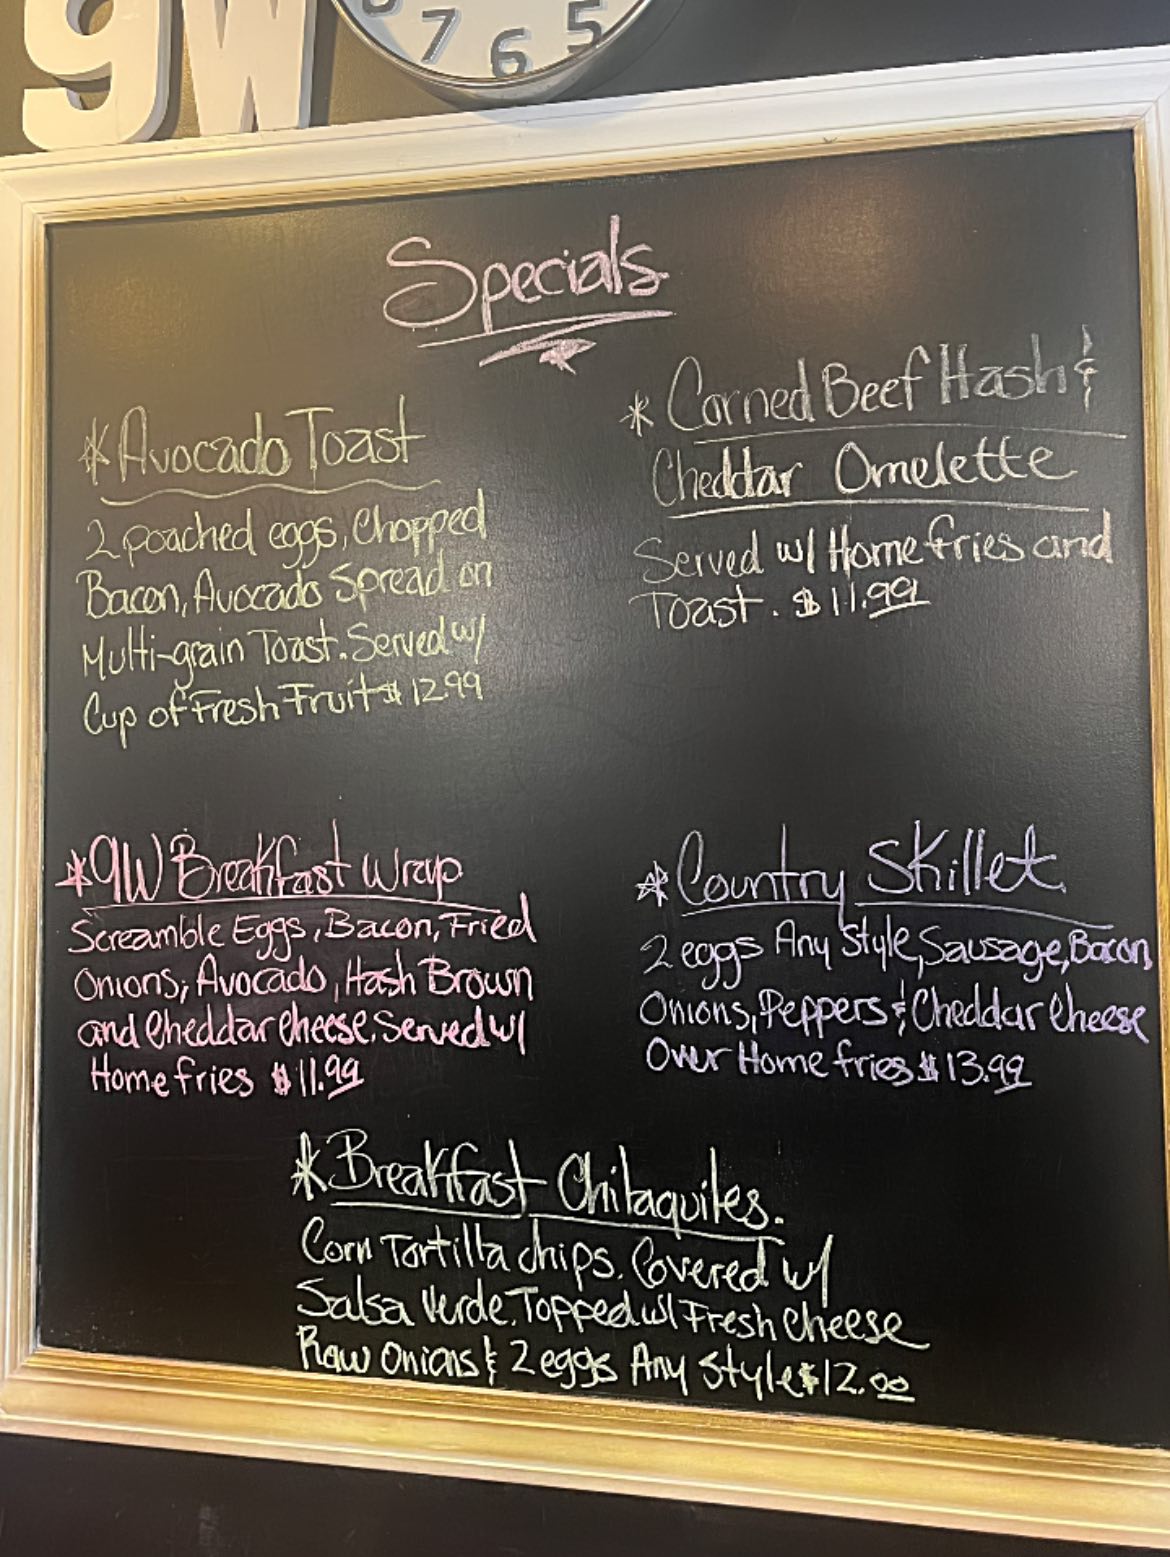 9W
8 7 6 5
Specials
* Avocado Toast
2 poached eggs, Chopped
Bacon, Avocado Spread on
Multi-grain Toast. Served w/
Cup of Fresh Fruit $ 12.99
* Corned Beef Hash &
Cheddar Omelette
Served w/ Home fries and
Toast. $ 11.99
* 9W Breakfast Wrap
Screamble Eggs, Bacon, Fried
Onions, Avocado, Hash Brown
and Cheddar Cheese. Served w/
Home fries $ 11.99
* Country Skillet
2 eggs Any Style, Sausage, Bacon,
Onions, Peppers & Cheddar Cheese
Over Home fries $ 13.99
* Breakfast Chilaquiles.
Corn Tortilla chips. Covered w/
Salsa Verde. Topped w/ Fresh Cheese
Raw Onions & 2 eggs Any Style $12.00